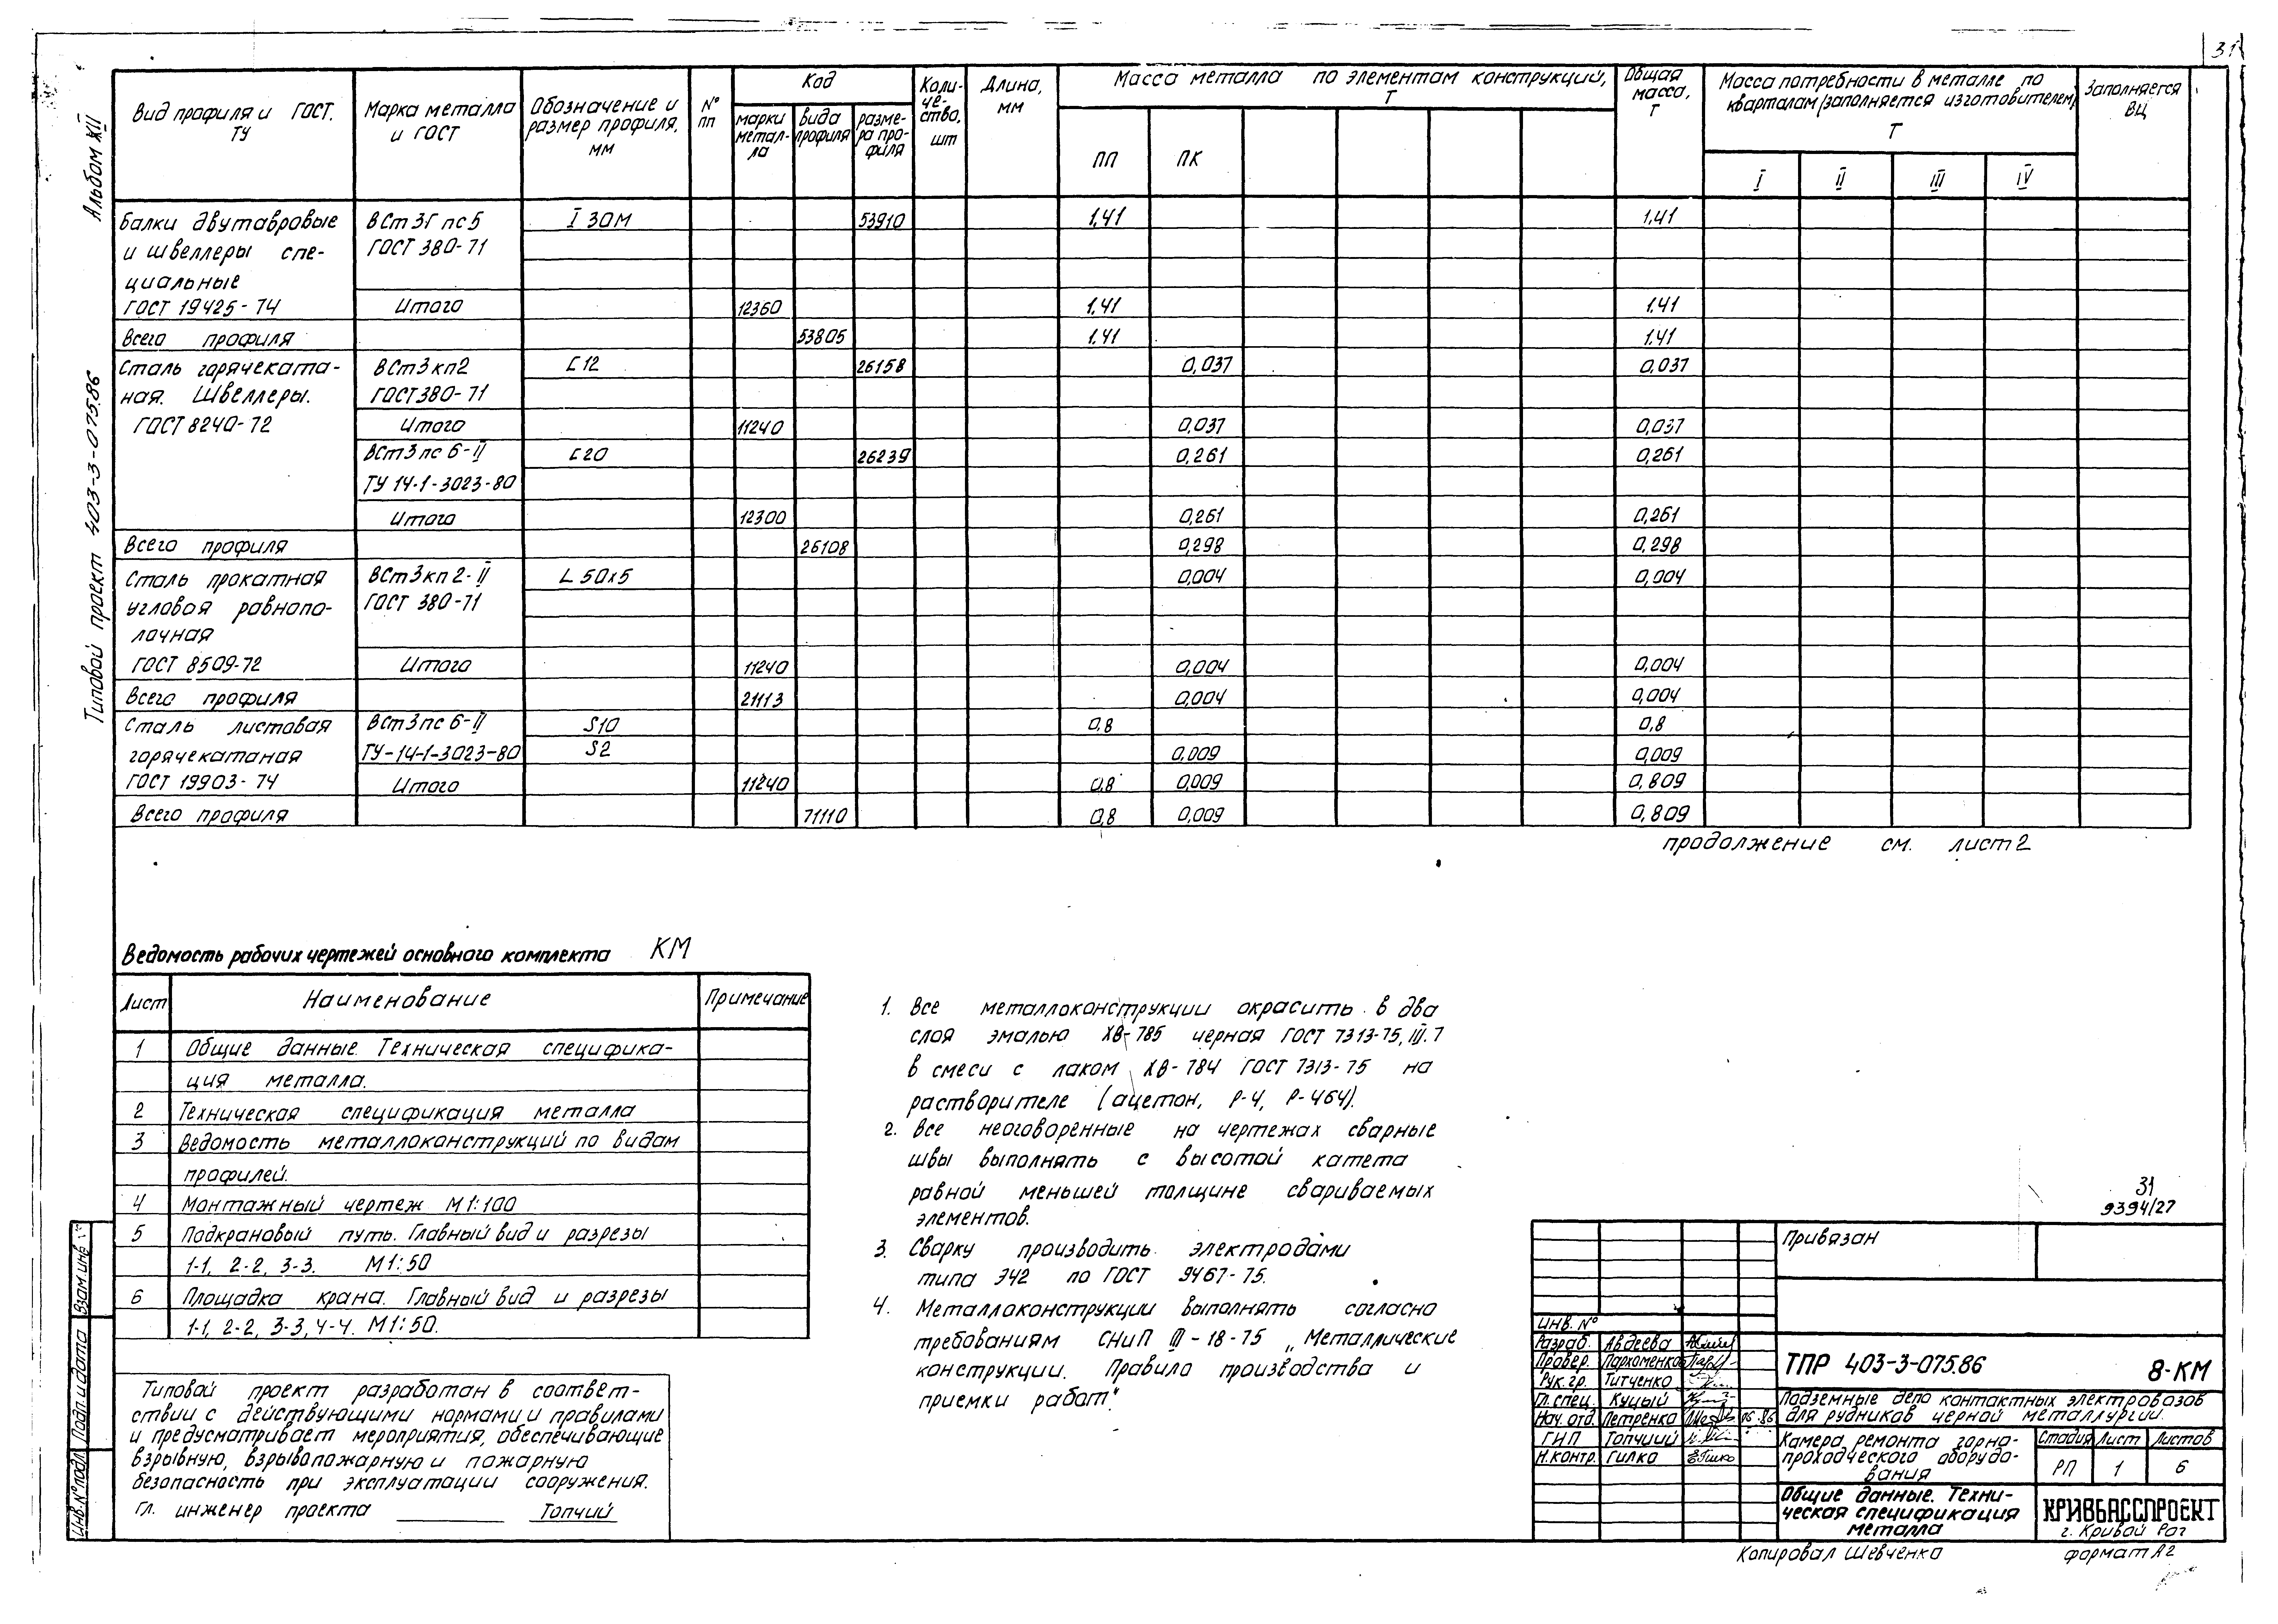 31
Альбом XII
Типовой проект 403-3-075.86
Вид профиля и ГОСТ, ТУ
Марка металла и ГОСТ
Обозначение и размер профиля, мм
N° пп
Код
марки метал-ла
вида профиля
разме-ра про-филя
Коли-че-ство, шт
Длина, мм
Масса металла по элементам конструкций, Т
ПП ПК
Общая масса, Т
Масса потребности в металле по кварталам (заполняется изготовителем) Т
I II III IV
Заполняется ВЦ
Балки двутавровые ВСт 3Г пс 5 I 30М 53910 1,41 1,41
и швеллеры спе- ГОСТ 380-71
циальные
ГОСТ 19425-74 Итого 12360 1,41 1,41
Всего профиля 53805 1,41 1,41
Сталь горячеката- ВСт3кп2 [12 26158 0,037 0,037
ная. Швеллеры. ГОСТ380-71
ГОСТ 8240-72 Итого 11240 0,037 0,037
ВСт3пс 6-II [20 26239 0,261 0,261
ТУ 14-1-3023-80
Итого 12300 0,261 0,261
Всего профиля 26108 0,298 0,298
Сталь прокатная ВСт3кп2-II L 50x5 0,004 0,004
угловая равнопо- ГОСТ 380-71
лочная
ГОСТ 8509-72 Итого 11240 0,004 0,004
Всего профиля 21113 0,004 0,004
Сталь листовая ВСт3пс 6-II S10 0,8 0,8
горячекатаная ТУ-14-1-3023-80 S2 0,009 0,009
ГОСТ 19903-74 Итого 11240 0,8 0,009 0,809
Всего профиля 71110 0,8 0,009 0,809
продолжение см. лист 2
Ведомость рабочих чертежей основного комплекта КМ
Лист Наименование Примечание
1 Общие данные. Техническая специфика-
ция металла.
2 Техническая спецификация металла
3 Ведомость металлоконструкций по видам
профилей.
4 Монтажный чертеж М1:100
5 Подкрановый путь. Главный вид и разрезы
1-1, 2-2, 3-3. М1:50
6 Площадка крана. Главный вид и разрезы
1-1, 2-2, 3-3, 4-4. М1:50.
Типовой проект разработан в соответ-
ствии с действующими нормами и правилами
и предусматривает мероприятия, обеспечивающие
взрывную, взрывопожарную и пожарную
безопасность при эксплуатации сооружения.
Гл. инженер проекта Топчий
1. Все металлоконструкции окрасить в два
слоя эмалью ХВ-785 черная ГОСТ 7313-75, III.7
в смеси с лаком ХВ-784 ГОСТ 7313-75 на
растворителе (ацетон, Р-4, Р-464).
2. Все неоговоренные на чертежах сварные
швы выполнять с высотой катета
равной меньшей толщине свариваемых
элементов.
3. Сварку производить электродами
типа Э42 по ГОСТ 9467-75.
4. Металлоконструкции выполнять согласно
требованиям СНиП III-18-75 „Металлические
конструкции. Правила производства и
приемки работ".
31
9394/27
Привязан
ИНВ. N°
Разраб. Авдеева
Провер. Пархоменко
Рук.гр. Титченко
Гл.спец. Куцый
Нач. отд. Петренко 06.86
ГИП Топчий
Н.контр. Гилко
ТПР 403-3-075.86 8-КМ
Подземные депо контактных электровозов
для рудников черной металлургии.
Камера ремонта горно-
проходческого оборудо-
вания
Стадия Лист Листов
РП 1 6
Общие данные. Техни-
ческая спецификация
металла
КРИВБАССПРОЕКТ
г. Кривой Рог
Копировал Шевченко формат А2
Взам.инв.№
Подп. и дата
Инв.№подл.